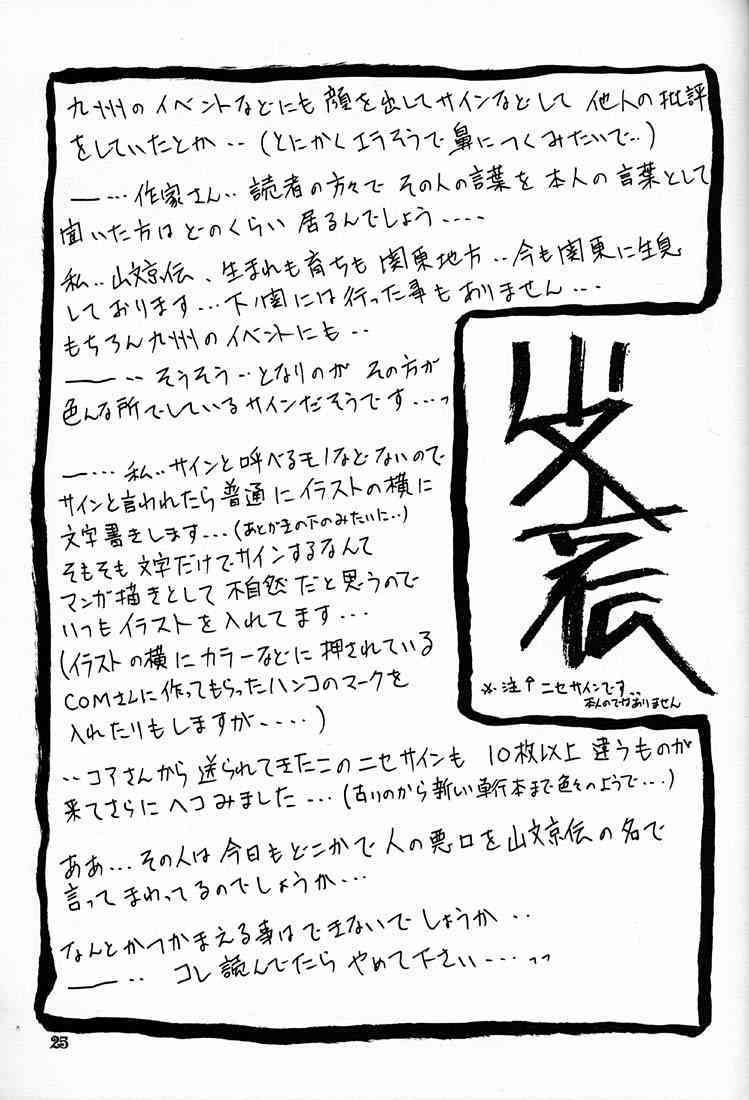 九州のイベントなどにも顔を出してサインなどして 他人の批評
をしていたとか‥（とにかくエラそうで鼻につくみたいで‥）
――…作家さん‥読者の方々で その人の言葉を 本人の言葉として
聞いた方は どのくらい 居るんでしょう‥‥
私‥山文京伝、生まれも育ちも 関東地方‥今も関東に生息
しております…下関には行った事もありません‥‥
もちろん九州のイベントにも‥
――‥そうそう‥となりのが その方が
色んな所でしているサインだそうです…っ
―…私‥サインと呼べるモノなどないので
サインと言われたら普通にイラストの横に
文字書きします…（あとがきの下のみたいに‥）
そもそも文字だけでサインするなんて
マンガ描きとして 不自然だと思うので
いつもイラストを入れてます…
（イラストの横にカラーなどに押されている
COMさんに作ってもらったハンコのマークを
入れたりもしますが‥‥）
山文京伝
※注↑ニセサインです‥
本人のではありません
‥コアさんから送られてきたこのニセサインも 10枚以上 違うものが
来てさらにヘコみました…（古いのから新しい単行本まで色々のようで…）
ああ…その人は今日もどこかで人の悪口を山文京伝の名で
言ってまわってるのでしょうか…
なんとかつかまえる事はできないでしょうか‥
――‥ コレ読んでたら やめて下さい‥‥っっ
25